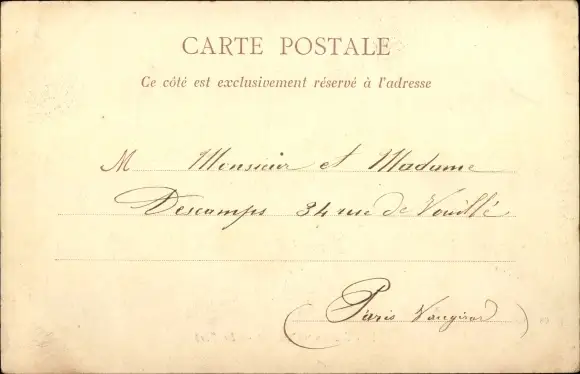 CARTE POSTALE
Ce côté est exclusivement réservé à l'adresse
M Monsieur et Madame
Descamps 34 rue de Vouillé
(Paris Vaugirard)